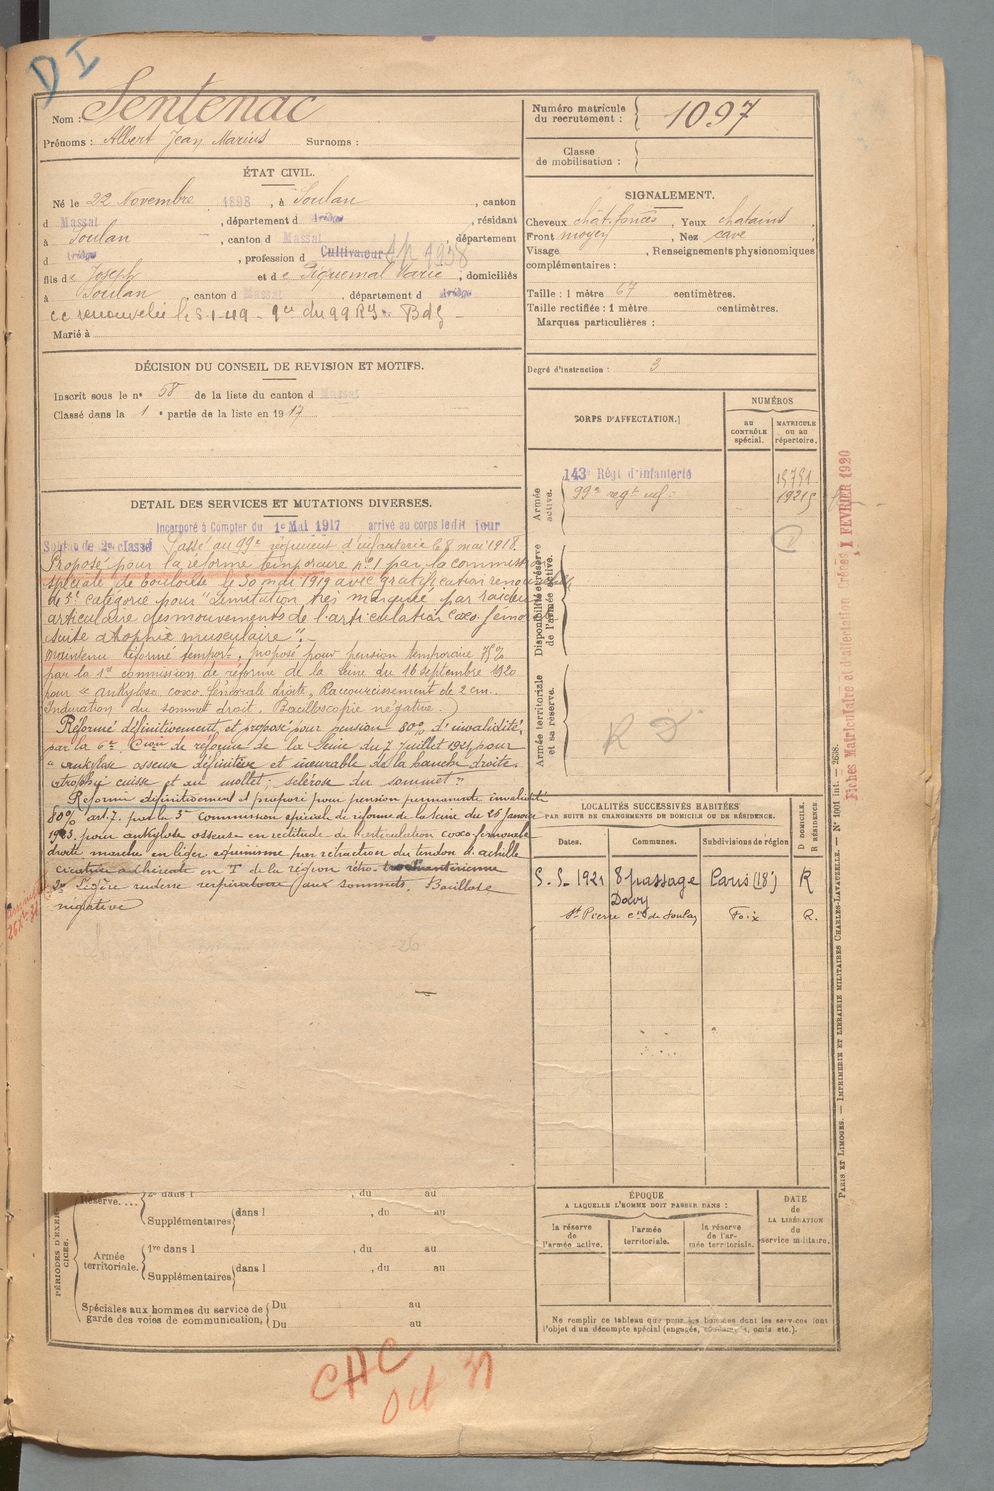 D I
Nom : Sentenac
Prénoms : Albert Jean Marius Surnoms :
ÉTAT CIVIL.
Né le 22 Novembre 1898, à Soulan, canton
d Massat, département d Ariège, résidant
à Soulan, canton d Massat, département
d Ariège, profession d Cultivateur
fils de Joseph et de Piquemal Marie, domiciliés
à Soulan, canton d Massat, département d Ariège
Marié à
DÉCISION DU CONSEIL DE REVISION ET MOTIFS.
Inscrit sous le n° 58 de la liste du canton d Massat
Classé dans la 1e partie de la liste en 1917
DETAIL DES SERVICES ET MUTATIONS DIVERSES.
Incorporé à Compter du 1e Mai 1917 arrivé au corps ledit jour
Soldat de 2e classe Passé au 99e régiment d'infanterie le 8 mai 1918.
Proposé pour la réforme temporaire n°1 par la commission
spéciale de Toulouse le 30 mai 1919 avec gratification
de 5e catégorie pour "Limitation très marquée par raideur
articulaire des mouvements de l'articulation Coxo
suite atrophie musculaire".
Maintenu Réformé tempore, proposé pour pension temporaire
par la 1e commission de réforme de la Seine du 16 septembre 1920
pour "ankylose coxo fémorale droite, Raccourcissement de 2 cm.
Induration du sommet droit. Bacilloscopie négative.
Réformé définitivement et proposé pour pension 80% d'invalidité,
par la 6e Cion de réforme de la Seine du 7 Juillet 1921 pour
"ankylose osseuse définitive et incurable de la hanche droite.
atrophie cuisse et au mollet; sclérose du sommet"
Réformé définitivement et proposé pour pension permanente invalidité
80% art. 7. par la 5e Commission spéciale de réforme de la Seine du 26 Janvier
1923 pour ankylose osseuse en rectitude de l'articulation coxo-fémorale
droite marche en léger equinisme par rétraction du tendon d'achille
cicatrice adhérente en T de la région rétro-trochantérienne
2° Légère rudesse respiratoire aux sommets. Bacillose
négative
PÉRIODES D'EXERCICES.
Réserve....
2e dans l , du au
Supplémentaires dans l , du au
Armée territoriale.
1re dans l , du au
Supplémentaires dans l , du au
Spéciales aux hommes du service de
garde des voies de communication,
Du au
Du au
Numéro matricule
du recrutement : 1097
Classe
de mobilisation :
SIGNALEMENT.
Cheveux chât. foncés, Yeux chatains
Front moyen, Nez cave
Visage , Renseignements physionomiques
complémentaires :
Taille : 1 mètre 67 centimètres.
Taille rectifiée : 1 mètre centimètres.
Marques particulières :
Degré d'instruction : 3
CORPS D'AFFECTATION.
NUMÉROS
AU CONTRÔLE spécial.
MATRICULE ou au répertoire.
Armée active.
143e Régt d'Infanterie
99e regt inf:
Disponibilité et réserve de l'armée active.
Armée territoriale et sa réserve.
R D
LOCALITÉS SUCCESSIVES HABITÉES
PAR SUITE DE CHANGEMENTS DE DOMICILE OU DE RÉSIDENCE.
Dates. Communes. Subdivisions de région D DOMICILE. R RÉSIDENCE.
5.5.1921 8 passage Paris (18e) R
Davy
St Pierre cne de Soulan Foix R.
ÉPOQUE
A LAQUELLE L'HOMME DOIT PASSER DANS :
la réserve de l'armée active.
l'armée territoriale.
la réserve de l'armée territoriale.
DATE de LA LIBÉRATION du service militaire.
Ne remplir ce tableau que pour les hommes dont les services font
l'objet d'un décompte spécial (engagés, omis etc.).
PARIS ET LIMOGES. — IMPRIMERIE ET LIBRAIRIE MILITAIRES CHARLES-LAVAUZELLE. — N° 1001 int. — 2638.
Fiches Matriculaire et d'affectation Créées 1 FEVRIER 1920
CAC
Oct 31